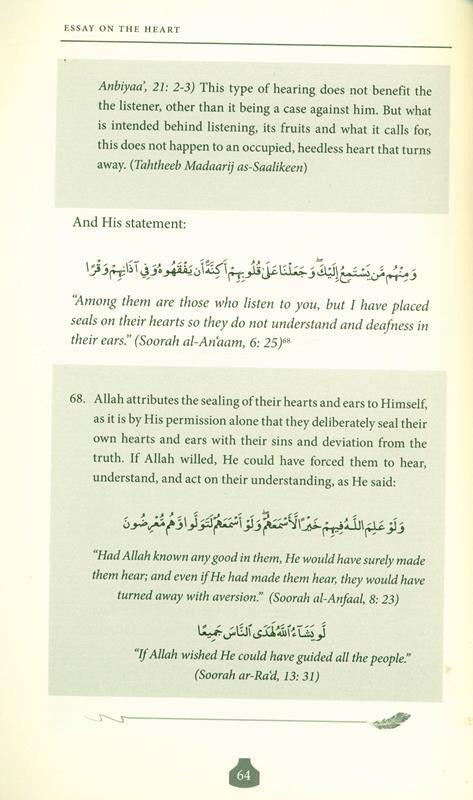 ESSAY ON THE HEART
Anbiyaa’, 21: 2-3) This type of hearing does not benefit the
the listener, other than it being a case against him. But what
is intended behind listening, its fruits and what it calls for,
this does not happen to an occupied, heedless heart that turns
away. (Tahtheeb Madaarij as-Saalikeen)
And His statement:
وَمِنْهُم مَّن يَسْتَمِعُ إِلَيْكَ ۖ وَجَعَلْنَا عَلَىٰ قُلُوبِهِمْ أَكِنَّةً أَن يَفْقَهُوهُ وَفِي آذَانِهِمْ وَقْرًا
“Among them are those who listen to you, but I have placed
seals on their hearts so they do not understand and deafness in
their ears.” (Soorah al-An‘aam, 6: 25)68
68. Allah attributes the sealing of their hearts and ears to Himself,
as it is by His permission alone that they deliberately seal their
own hearts and ears with their sins and deviation from the
truth. If Allah willed, He could have forced them to hear,
understand, and act on their understanding, as He said:
وَلَوْ عَلِمَ اللَّهُ فِيهِمْ خَيْرًا لَّأَسْمَعَهُمْ ۖ وَلَوْ أَسْمَعَهُمْ لَتَوَلَّوا وَّهُم مُّعْرِضُونَ
“Had Allah known any good in them, He would have surely made
them hear; and even if He had made them hear, they would have
turned away with aversion.” (Soorah al-Anfaal, 8: 23)
لَّوْ يَشَاءُ اللَّهُ لَهَدَى النَّاسَ جَمِيعًا
“If Allah wished He could have guided all the people.”
(Soorah ar-Ra‘d, 13: 31)
64